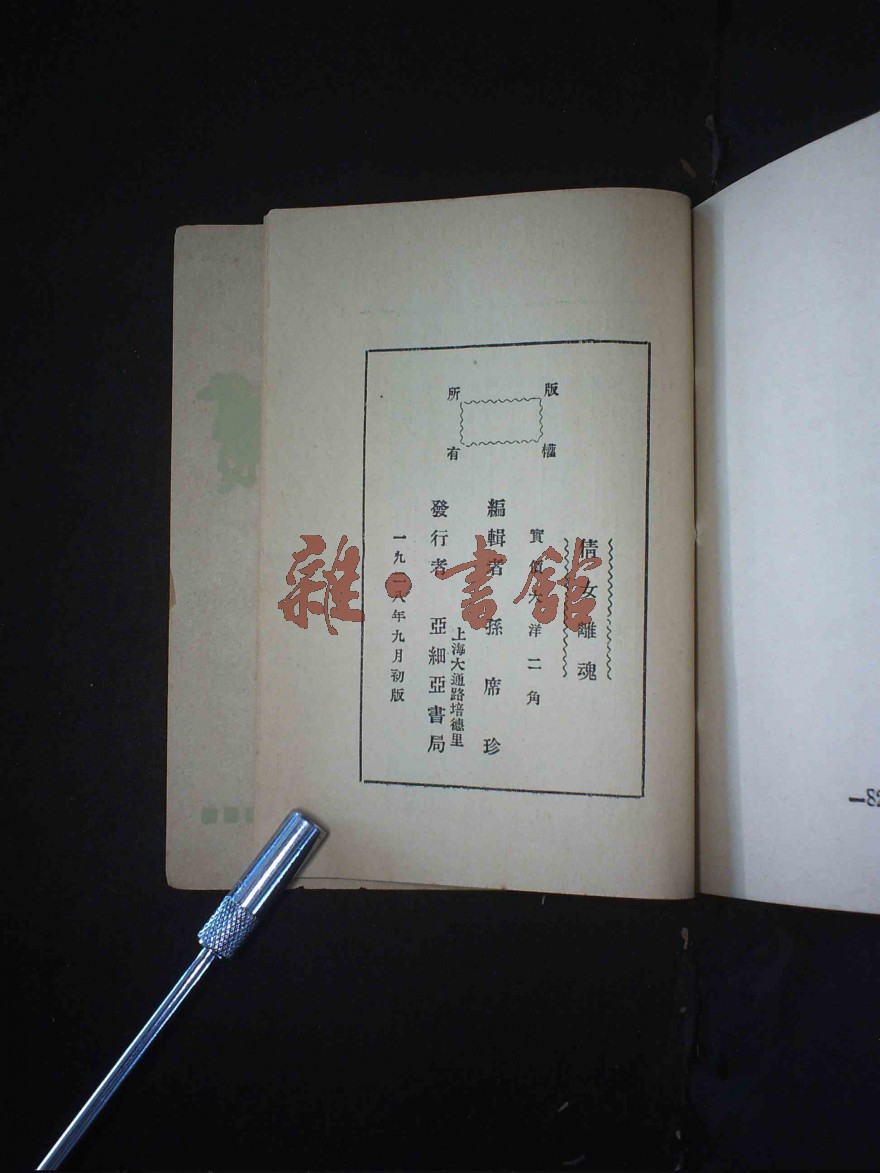 版權
所有
倩女離魂
實價大洋二角
編輯者 孫席珍
上海大通路培德里
發行者 亞細亞書局
一九二八年九月初版
雜·書館